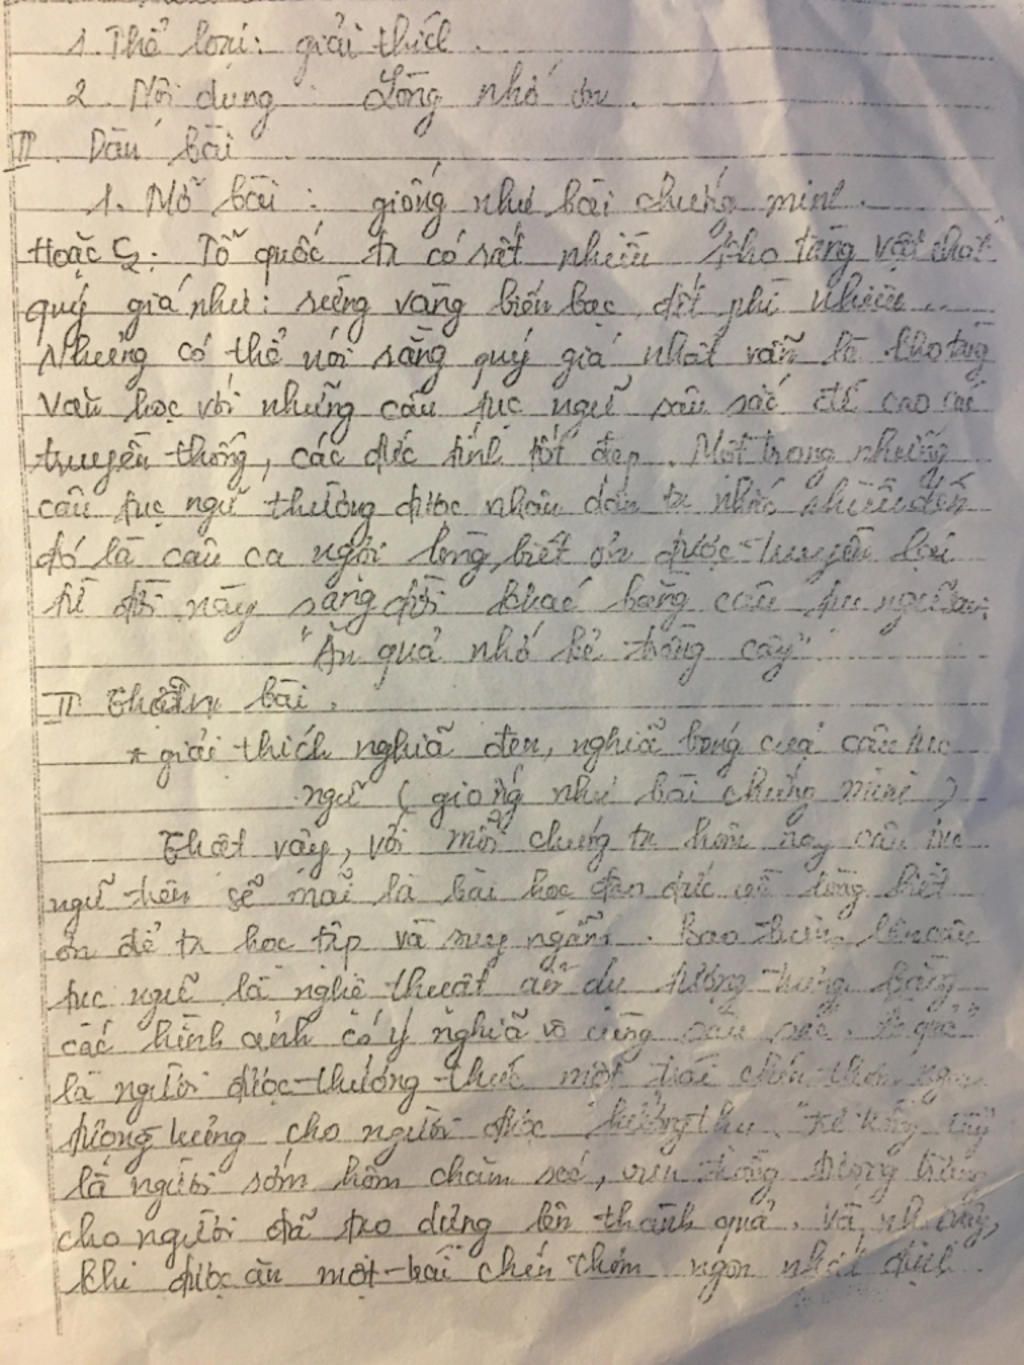 1. Thể loại: giải thích.
2. Nội dung: Lòng nhớ ơn.
II. Dàn bài
1. Mở bài: giống như bài chứng minh.
Hoặc là: Tổ quốc ta có rất nhiều kho tàng vật chất
quý giá như: rừng vàng biển bạc, đất phì nhiêu...
Nhưng có thể nói rằng quý giá nhất vẫn là kho tàng
Văn học với những câu tục ngữ sâu sắc đề cao các
truyền thống, các đức tính tốt đẹp. Một trong những
câu tục ngữ thường được nhân dân ta nhắc nhiều đến
đó là câu ca ngợi lòng biết ơn được truyền lại
từ đời này sang đời khác bằng câu tục ngữ
"Ăn quả nhớ kẻ trồng cây"
II Thân bài.
* giải thích nghĩa đen, nghĩa bóng của câu tục
ngữ (giống như bài chứng minh)
Thật vậy, với mỗi chúng ta hôm nay câu tục
ngữ trên sẽ mãi là bài học đạo đức về lòng biết
ơn để ta học tập và suy ngẫm. Bao trùm lên câu
tục ngữ là nghệ thuật ẩn dụ tượng trưng bằng
các hình ảnh có ý nghĩa vô cùng sâu sắc. Ăn quả
là người được thưởng thức một trái chín thơm ngon
tượng trưng cho người được hưởng thụ. "Kẻ trồng cây"
là người sớm hôm chăm sóc, vun trồng tượng trưng
cho người đã tạo dựng lên thành quả. Và như vậy,
khi được ăn một trái chín thơm ngon nhất định